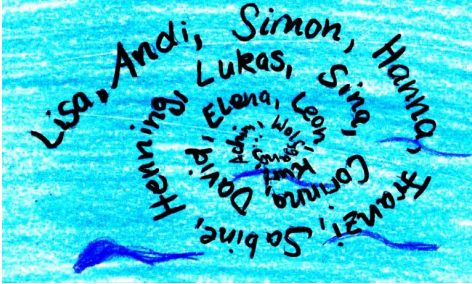 Lisa, Andi, Simon, Hanna, Franzi, Sabine, Henning, Lukas, Sina, Corinna, David, Elena, Leon, Kurt,